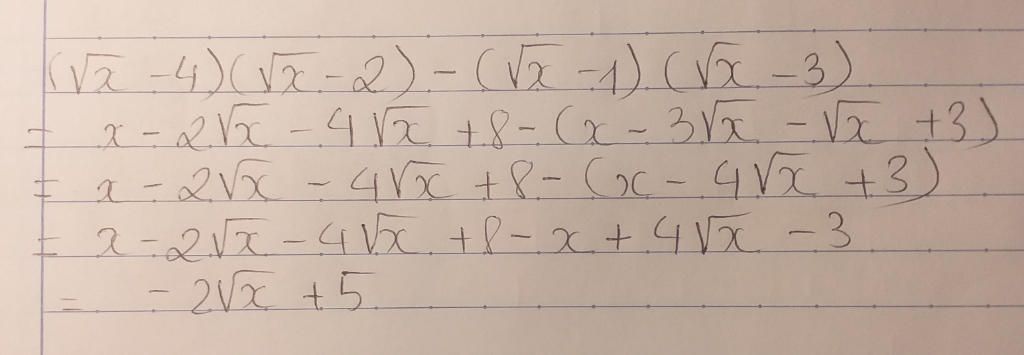 (√x - 4)(√x - 2) - (√x - 1)(√x - 3)
= x - 2√x - 4√x + 8 - (x - 3√x - √x + 3)
= x - 2√x - 4√x + 8 - (x - 4√x + 3)
= x - 2√x - 4√x + 8 - x + 4√x - 3
= - 2√x + 5